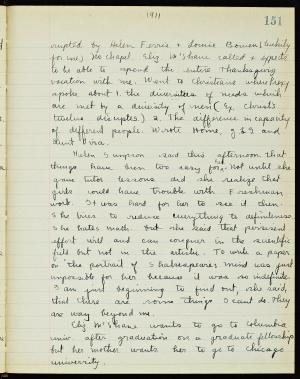 1911
151
rupted by Helen Ferris & Louise Bowen (luckily
for me) No chapel. Eliz McShane called & expects
to be able to spend the entire Thanksgiving
vacation with me. Went to Christians
spoke about 1. the diversities of needs which
are met by a diversity of men (Ex. Christ's
twelve disciples.) 2. The difference in capacity
of different people. Wrote Home, &
Aunt Vira.
Helen Simpson said this afternoon that
things have been too easy for Not until she
gave tutor lessons did she realize that
girls could have trouble with Freshman
work. It was hard for her to see it then.
She tries to reduce everything to definiteness.
She hates math. but she said that persistent
effort will and can conquer in the scientific
field but not in the artistic. To write a paper
on "the portrait of Shakespeare's mind" was just
impossible for her because it was so indefinite.
I am just beginning to find out, she said,
that there are some things I can't do. They
are way beyond me.
Eliz McShane wants to go to Columbia
univ. after graduation on a graduate fellowship
but her mother wants her to go to Chicago
university.